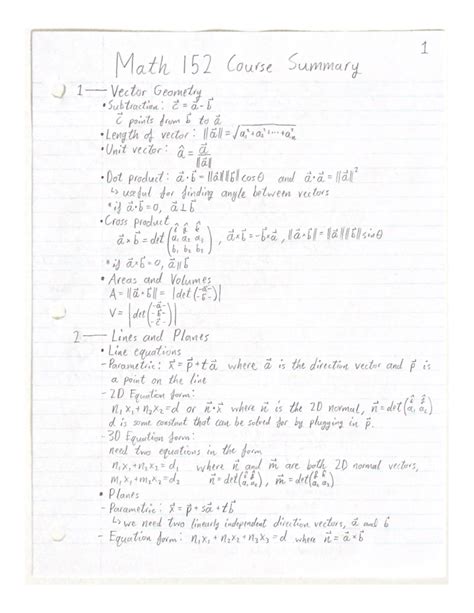 1
Math 152 Course Summary
1 — Vector Geometry
• Subtraction: c⃗ = a⃗ - b⃗
c⃗ points from b⃗ to a⃗
• Length of vector: ||a⃗|| = √(a₁² + a₂² + ... + aₙ²)
• Unit vector: â = a⃗ / ||a⃗||
• Dot product: a⃗ • b⃗ = ||a⃗|| ||b⃗|| cosθ and a⃗ • a⃗ = ||a⃗||²
↳ useful for finding angle between vectors
* if a⃗ • b⃗ = 0, a⃗ ⊥ b⃗
• Cross product
a⃗ × b⃗ = det(î ĵ k̂ / a₁ a₂ a₃ / b₁ b₂ b₃), a⃗ × b⃗ = -b⃗ × a⃗, ||a⃗ × b⃗|| = ||a⃗|| ||b⃗|| sinθ
* if a⃗ × b⃗ = 0, a⃗ ∥ b⃗
• Areas and Volumes
A = ||a⃗ × b⃗|| = |det(-a⃗- / -b⃗-)|
V = |det(-a⃗- / -b⃗- / -c⃗-)|
2 — Lines and Planes
• Line equations
- Parametric: x⃗ = p⃗ + ta⃗ where a⃗ is the direction vector and p⃗ is
a point on the line
- 2D Equation form:
n₁x₁ + n₂x₂ = d or n⃗ • x⃗ where n⃗ is the 2D normal, n⃗ = det(î ĵ / a₁ a₂)
d is some constant that can be solved for by plugging in p⃗.
- 3D Equation form:
need two equations in the form
n₁x₁ + n₂x₂ = d₁ where n⃗ and m⃗ are both 2D normal vectors,
m₁x₁ + m₂x₃ = d₂ n⃗ = det(î ĵ / a₁ a₂), m⃗ = det(î k̂ / a₁ a₃)
• Planes
- Parametric: x⃗ = p⃗ + sa⃗ + tb⃗
↳ we need two linearly independent direction vectors, a⃗ and b⃗
- Equation form: n₁x₁ + n₂x₂ + n₃x₃ = d where n⃗ = a⃗ × b⃗